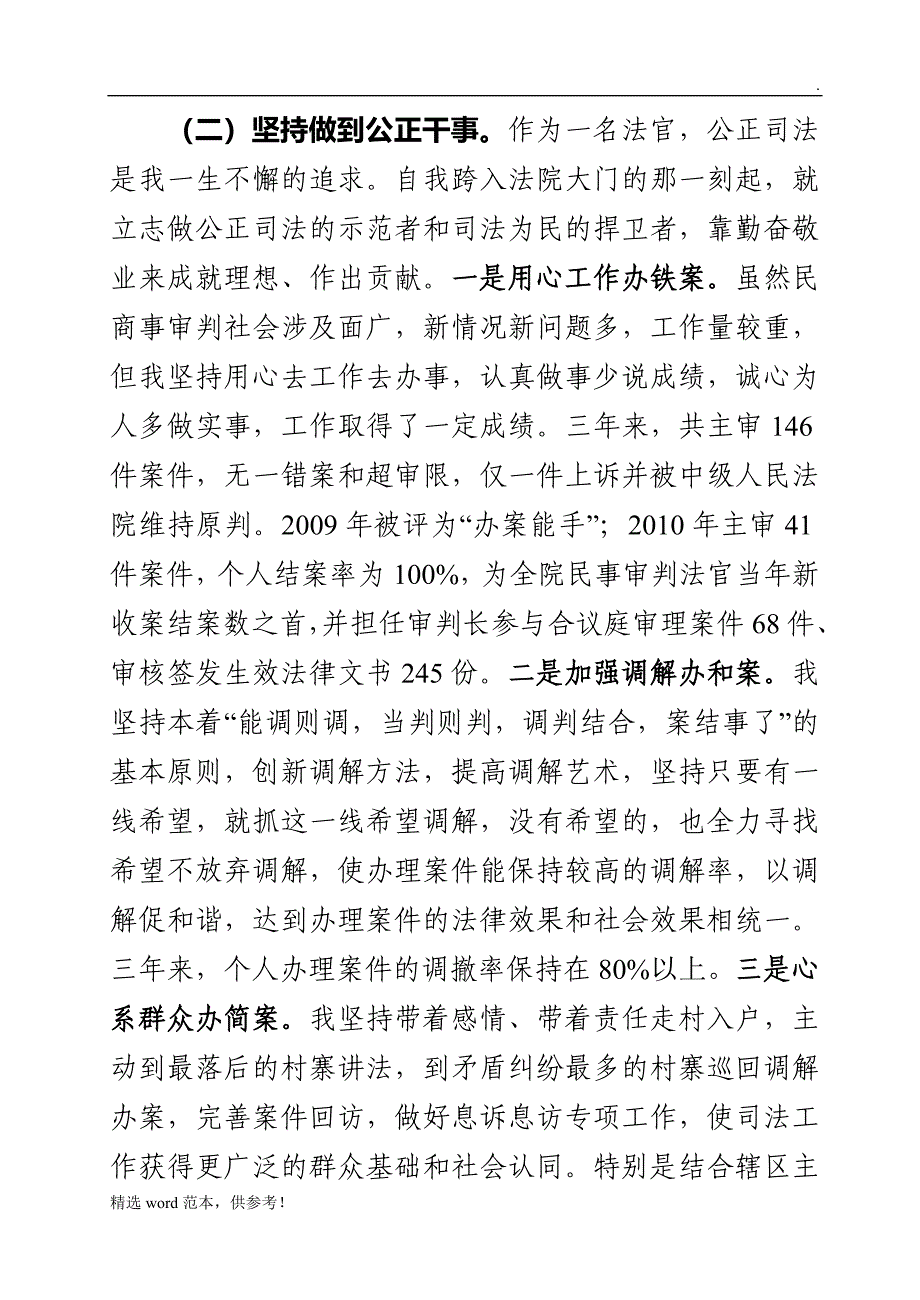 .
（二）坚持做到公正干事。作为一名法官，公正司法
是我一生不懈的追求。自我跨入法院大门的那一刻起，就
立志做公正司法的示范者和司法为民的捍卫者，靠勤奋敬
业来成就理想、作出贡献。一是用心工作办铁案。虽然民
商事审判社会涉及面广，新情况新问题多，工作量较重，
但我坚持用心去工作去办事，认真做事少说成绩，诚心为
人多做实事，工作取得了一定成绩。三年来，共主审 146
件案件，无一错案和超审限，仅一件上诉并被中级人民法
院维持原判。2009 年被评为“办案能手”；2010 年主审 41
件案件，个人结案率为 100%，为全院民事审判法官当年新
收案结案数之首，并担任审判长参与合议庭审理案件 68 件、
审核签发生效法律文书 245 份。二是加强调解办和案。我
坚持本着“能调则调，当判则判，调判结合，案结事了”的
基本原则，创新调解方法，提高调解艺术，坚持只要有一
线希望，就抓这一线希望调解，没有希望的，也全力寻找
希望不放弃调解，使办理案件能保持较高的调解率，以调
解促和谐，达到办理案件的法律效果和社会效果相统一。
三年来，个人办理案件的调撤率保持在 80%以上。三是心
系群众办简案。我坚持带着感情、带着责任走村入户，主
动到最落后的村寨讲法，到矛盾纠纷最多的村寨巡回调解
办案，完善案件回访，做好息诉息访专项工作，使司法工
作获得更广泛的群众基础和社会认同。特别是结合辖区主
精选 word 范本，供参考！